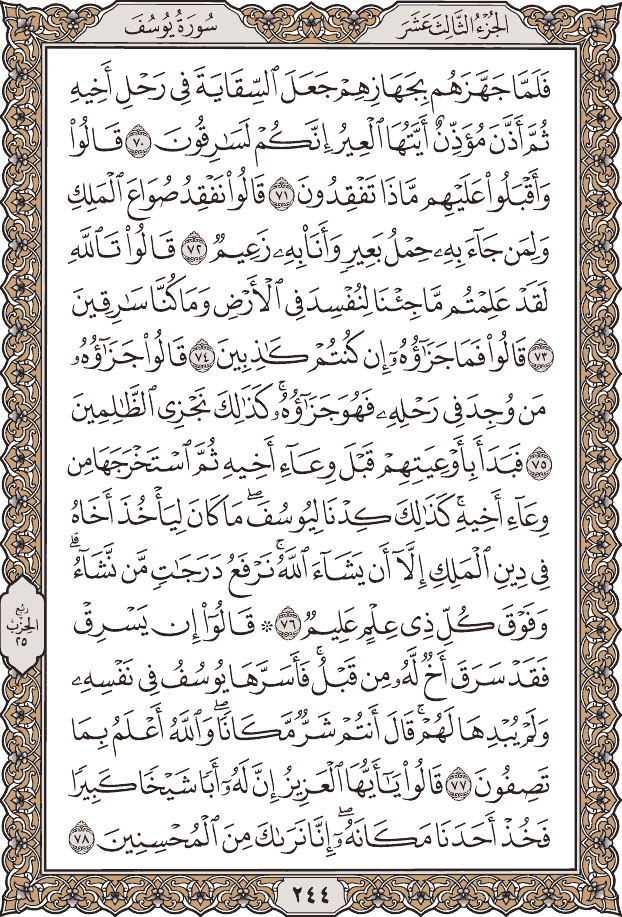 سُورَةُ يُوسُفَ
الجُزْءُ الثَّالِثَ عَشَرَ
فَلَمَّا جَهَّزَهُم بِجَهَازِهِمْ جَعَلَ ٱلسِّقَايَةَ فِى رَحْلِ أَخِيهِ
ثُمَّ أَذَّنَ مُؤَذِّنٌ أَيَّتُهَا ٱلْعِيرُ إِنَّكُمْ لَسَٰرِقُونَ ٧٠ قَالُوا۟
وَأَقْبَلُوا۟ عَلَيْهِم مَّاذَا تَفْقِدُونَ ٧١ قَالُوا۟ نَفْقِدُ صُوَاعَ ٱلْمَلِكِ
وَلِمَن جَآءَ بِهِۦ حِمْلُ بَعِيرٍ وَأَنَا۠ بِهِۦ زَعِيمٌ ٧٢ قَالُوا۟ تَٱللَّهِ
لَقَدْ عَلِمْتُم مَّا جِئْنَا لِنُفْسِدَ فِى ٱلْأَرْضِ وَمَا كُنَّا سَٰرِقِينَ
٧٣ قَالُوا۟ فَمَا جَزَٰٓؤُهُۥٓ إِن كُنتُمْ كَٰذِبِينَ ٧٤ قَالُوا۟ جَزَٰٓؤُهُۥ
مَن وُجِدَ فِى رَحْلِهِۦ فَهُوَ جَزَٰٓؤُهُۥ ۚ كَذَٰلِكَ نَجْزِى ٱلظَّٰلِمِينَ
٧٥ فَبَدَأَ بِأَوْعِيَتِهِمْ قَبْلَ وِعَآءِ أَخِيهِ ثُمَّ ٱسْتَخْرَجَهَا مِن
وِعَآءِ أَخِيهِ ۚ كَذَٰلِكَ كِدْنَا لِيُوسُفَ ۖ مَا كَانَ لِيَأْخُذَ أَخَاهُ
فِى دِينِ ٱلْمَلِكِ إِلَّآ أَن يَشَآءَ ٱللَّهُ ۚ نَرْفَعُ دَرَجَٰتٍ مَّن نَّشَآءُ ۗ
وَفَوْقَ كُلِّ ذِى عِلْمٍ عَلِيمٌ ٧٦ ۞ قَالُوٓا۟ إِن يَسْرِقْ
فَقَدْ سَرَقَ أَخٌ لَّهُۥ مِن قَبْلُ ۚ فَأَسَرَّهَا يُوسُفُ فِى نَفْسِهِۦ
وَلَمْ يُبْدِهَا لَهُمْ ۚ قَالَ أَنتُمْ شَرٌّ مَّكَانًا ۖ وَٱللَّهُ أَعْلَمُ بِمَا
تَصِفُونَ ٧٧ قَالُوا۟ يَٰٓأَيُّهَا ٱلْعَزِيزُ إِنَّ لَهُۥٓ أَبًا شَيْخًا كَبِيرًا
فَخُذْ أَحَدَنَا مَكَانَهُۥٓ ۖ إِنَّا نَرَىٰكَ مِنَ ٱلْمُحْسِنِينَ ٧٨
رُبع
الحِزْب
٢٥
٢٤٤